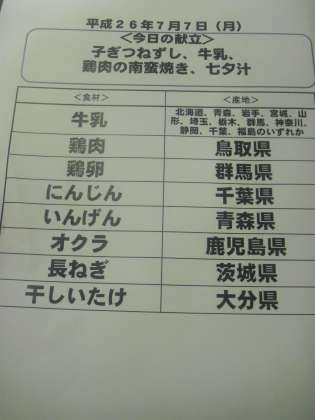 平成２６年７月７日（月）
＜今日の献立＞
子ぎつねずし、牛乳、
鶏肉の南蛮焼き、七夕汁
＜食材＞ ＜産地＞
牛乳 北海道、青森、岩手、宮城、山
形、埼玉、栃木、群馬、神奈川、
静岡、千葉、福島のいずれか
鶏肉 鳥取県
鶏卵 群馬県
にんじん 千葉県
いんげん 青森県
オクラ 鹿児島県
長ねぎ 茨城県
干しいたけ 大分県